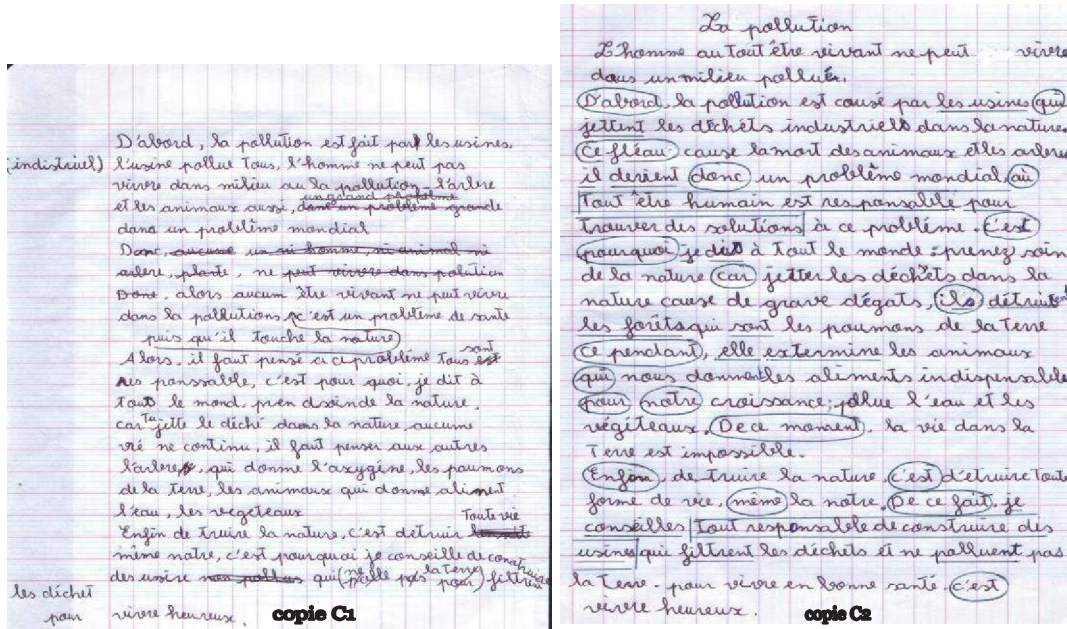 D'abord, la pollution est fait par les usines.
(indistriel) l'usine pollue tous, l'homme ne peut pas
vivre dans milieu au la pollution l'arbre
un grand problème
et les animaux aussi, donc un problème grande
dans un problème mondial
Donc, aucune un ni homme, ni animal ni
arbre, plante, ne peut vivre dans polution
Donc, alors aucum être vivant ne peut vivre
dans la pollutions, c'est un problème de sante
puis qu'il touche la nature
Alors, il faut pensé a ce problème tous sont est
res ponssable, c'est pour quoi, je dit à
tout le mond, pren dsoin de la nature,
car Tu jette le déché dans la nature aucume
vie ne continu, il faut penser aux autres
l'arbre, qui donne l'axygène, les poumons
de la terre, les animaux qui donne aliment
l'eau, les vegeteaux
Toute vie
Enfin de truire la nature, c'est détruir
même notre, c'est pourquoi je conseille de construire
des usire non pollus qui (ne pollue pas la terre pour) filtrent
les déchet
pour vivre heureux.
copie C1
La pollution
L'homme au tout être vivant ne peut vivre
dans un milieu pollué.
D'abord, la pollution est causé par les usines qui
jettent les déchéts industriels dans la nature
Ce fléau cause la mort des animaux et les arbres
il devient donc un problème mondial, où
Tout être humain est responsable pour
trouver des solutions à ce problème. c'est
pourquoi je dis à tout le monde : prenez soin
de la nature car jetter les déchets dans la
nature cause de grave dégats, ils détruisent
les forêts qui sont les poumons de la terre
ce pendant, elle extermine les animaux
qui nous donnent les aliments indispensable
pour notre croissance, pollue l'eau et les
végéteaux. De ce moment, la vie dans la
Terre est impossible.
Enfin, de truire la nature, c'est d'etruire toute
forme de vie, même la notre. De ce fait, je
conseilles tout responsable de construire des
usines qui filtrent les déchets et ne polluent pas
la terre. pour vivre en bonne santé. c'est
vivre heureux.
copie C2